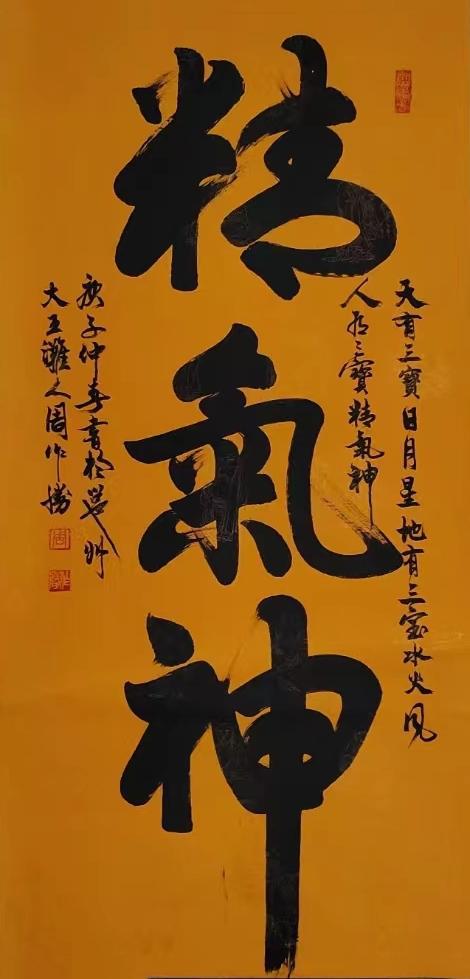 精氣神
天有三寶日月星地有三宝水火风
人有三寶精氣神
庚子仲春書於邕州
大王灘人周作勝